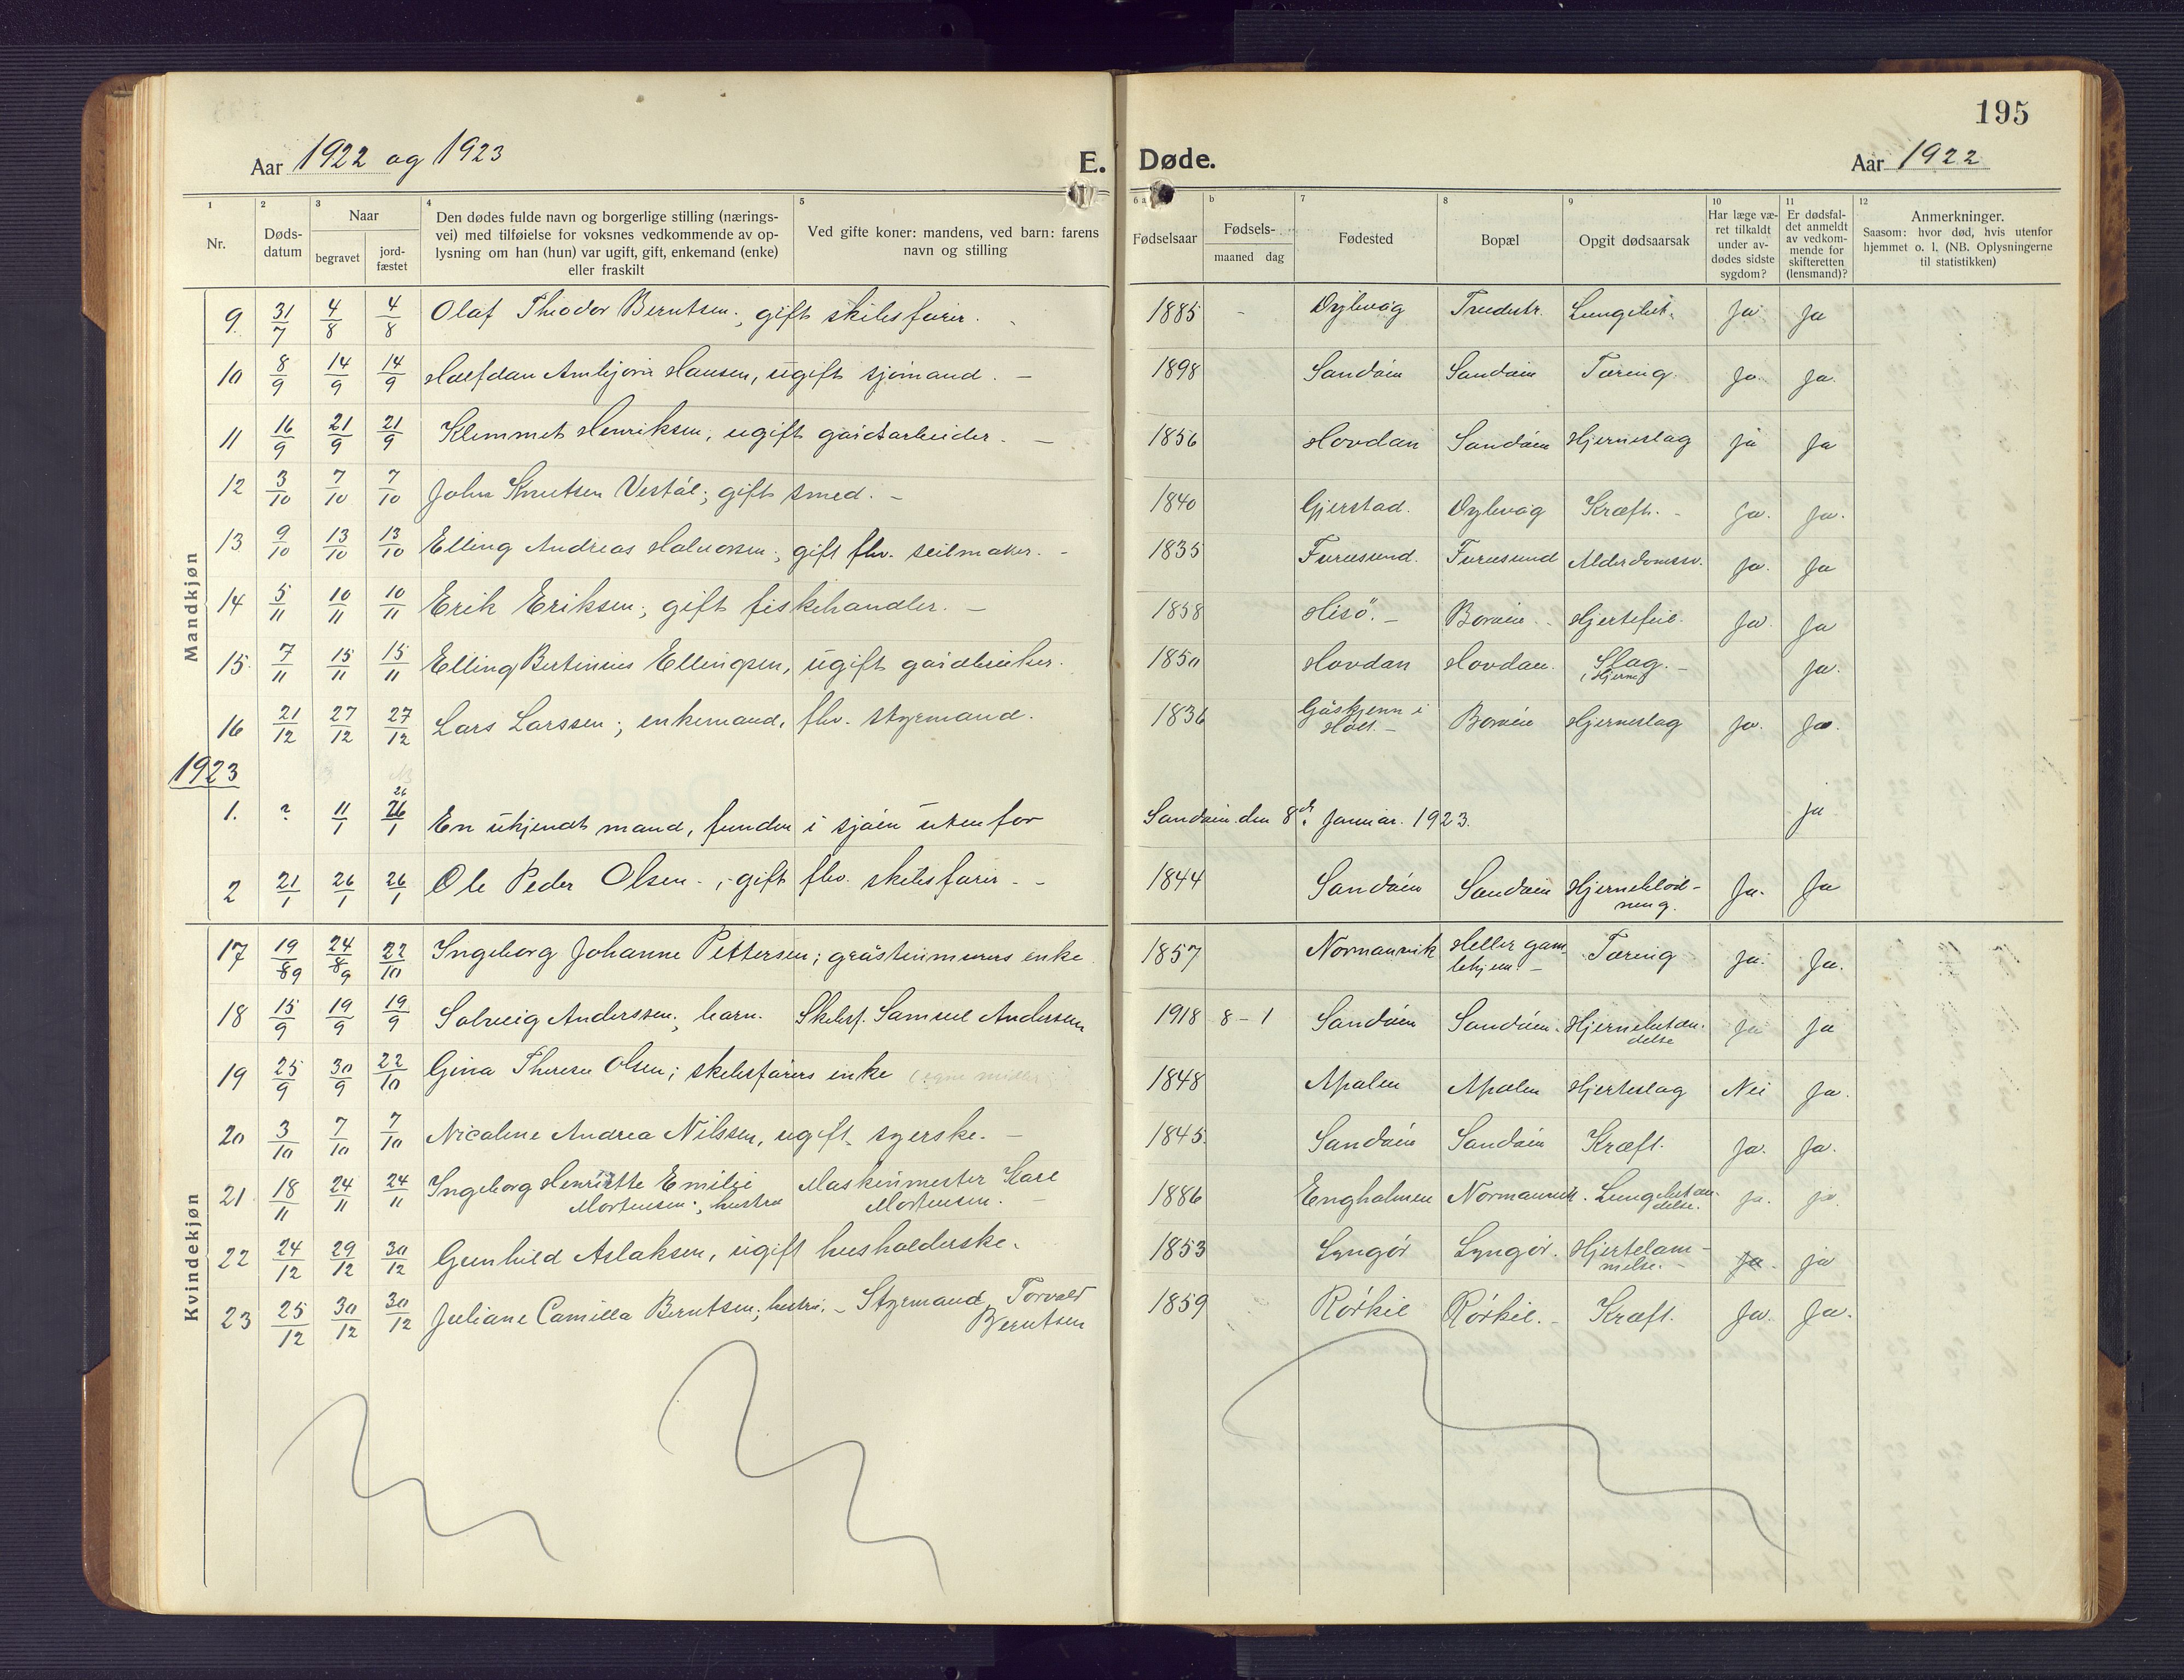 195
Aar 1922 og 1923
E. Døde.
Aar 1922
1 2 3 4 5 6 a b 7 8 9 10 11 12
Nr.
Døds-
datum
Naar
begravet
jord-
fæstet
Den dødes fulde navn og borgerlige stilling (nærings-
vei) med tilføielse for voksnes vedkommende av op-
lysning om han (hun) var ugift, gift, enkemand (enke)
eller fraskilt
Ved gifte koner: mandens, ved barn: farens
navn og stilling
Fødselsaar
Fødsels-
maaned dag
Fødested
Bopæl
Opgit dødsaarsak
Har læge væ-
ret tilkaldt
under av-
dødes sidste
sygdom?
Er dødsfal-
det anmeldt
av vedkom-
mende for
skifteretten
(lensmand)?
Anmerkninger.
Saasom: hvor død, hvis utenfor
hjemmet o. l. (NB. Oplysningerne
til statistikken)
Mandkjøn
9 31/7 4/8 4/8 Olaf Theodor Berntsen; gift skibsfører. 1885 Dybvåg Lungebet. Ja Ja
10 8/9 14/9 14/9 Halfdan Arnbjørn Hansen, ugift sjømand. 1898 Sandøen Sandøen Tæring Ja. Ja.
11 16/9 21/9 21/9 Klemmet Henriksen, ugift gårdsarbeider. 1856 Hovdan Sandøen Hjerneslag ja Ja
12 3/10 7/10 7/10 John Knutsen Vestøl; gift smed. 1840 Gjerstad. Dybvåg Kræft. Ja. Ja.
13 9/10 13/10 13/10 Elling Andreas Halvorsen; gift fhv. seilmaker. 1835 Furøsund. Furøsund Alderdomssv. Ja. Ja
14 5/11 10/11 10/11 Erik Eriksen; gift fiskehandler. 1858 Hisö. Borøen Hjertefeil. Ja. Ja
15. 7/11 15/11 15/11 Elling Bertinius Ellingsen, ugift gårdbruker. 1850 Hovdan Hovdan. Slag. (Hjerne) Ja.
16 21/12 27/12 27/12 Lars Larssen; enkemand, fhv. styrmand. 1836 Gåskjenn i Holt. Borøen Hjerneslag Ja. Ja.
1923
1. ? 11/1 26/1 En ukjendt mand, funden i sjøen utenfor Sandøen den 8de Januar. 1923. Ja
2 21/1 26/1 26/1 Ole Peder Olsen; gift fhv. skibsfører. 1844 Sandøen Sandøen Hjerneblød-
ning. Ja. Ja
Kvindekjøn
17 19/9 24/9 22/10 Ingeborg Johanne Pettersen; gråstenmurers enke 1857 Normannvik Heller gam-
lehjem. Tæring Ja. Ja.
18 15/9 19/9 19/9 Solveig Anderssen; barn. Skibsf. Samuel Anderssen 1918 8 - 1 Sandøen Sandøen. Hjernebetæn-
delse Ja Ja
19 25/9 30/9 22/10 Gina Therese Olsen; skibsførers enke 1848 Apalen Apalen Hjerteslag Nei Ja.
20 3/10 7/10 7/10 Nicoline Andrea Nilssen, ugift syerske. 1845. Sandøen Sandøen Kræft. Ja. Ja.
21 18/11 24/11 24/11 Ingeborg Henriette Emilie Maskinmester Kare
Mortensen; hustru Mortensen. 1886 Engholmen Normannvik. Lungebetæn-
delse. Ja. ja.
22 24/12 29/12 30/12 Gunhild Aslaksen, ugift husholderske. 1853 Lyngør Lyngør. Hjertelam-
melse. Ja. ja
23 25/12 30/12 30/12 Juliane Camilla Berntsen; hustru. Styrmand Torvald
Berntsen 1859 Rørkil Rørkil. Kræft. Ja. Ja.